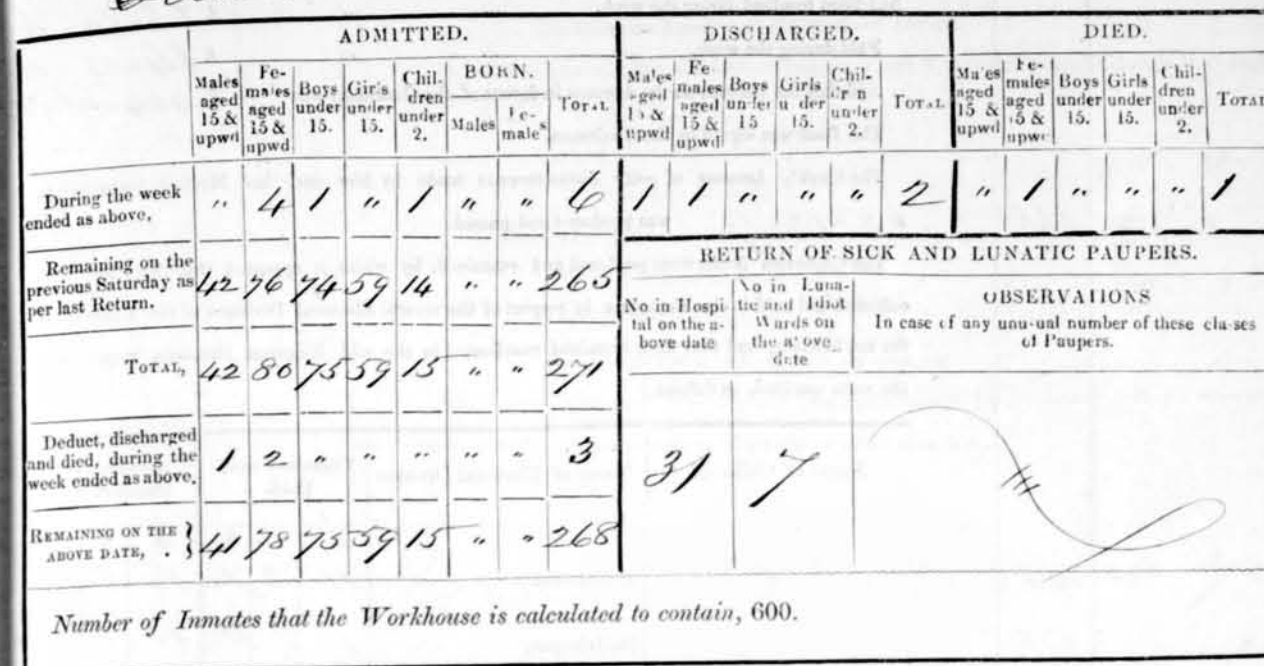 ADMITTED. DISCHARGED. DIED.
Males aged 15 & upwd Fe-males aged 15 & upwd Boys under 15. Girls under 15. Chil-dren under 2. BORN. Males Fe-males TOTAL Males aged 15 & upwd Fe males aged 15 & upwd Boys under 15. Girls under 15. Chil-dren under 2. TOTAL Males aged 15 & upwd Fe-males aged 15 & upwd Boys under 15. Girls under 15. Chil-dren under 2. TOTAL
During the week ended as above, " 4 1 " 1 " " 6 1 1 " " " 2 " 1 " " " 1
Remaining on the previous Saturday as per last Return. 42 76 74 59 14 " " 265
TOTAL, 42 80 75 59 15 " " 271
Deduct, discharged and died, during the week ended as above. 1 2 " " " " " 3
REMAINING ON THE ABOVE DATE, . } 41 78 75 59 15 " " 268
RETURN OF SICK AND LUNATIC PAUPERS.
No in Hospi-tal on the a-bove date
No in Luna-tic and Idiot Wards on the above date
OBSERVATIONS
In case of any unusual number of these classes
of Paupers.
31 7
Number of Inmates that the Workhouse is calculated to contain, 600.